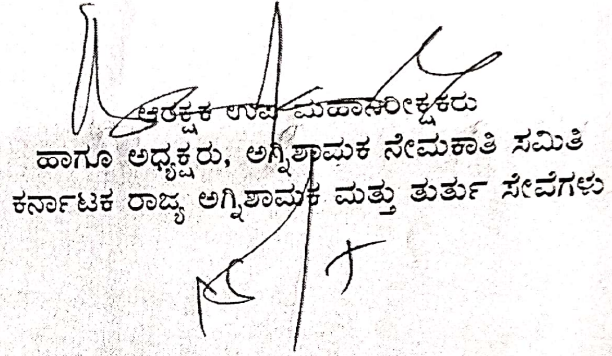 ಆರಕ್ಷಕ ಉಪ ಮಹಾನಿರೀಕ್ಷಕರು
ಹಾಗೂ ಅಧ್ಯಕ್ಷರು, ಅಗ್ನಿಶಾಮಕ ನೇಮಕಾತಿ ಸಮಿತಿ
ಕರ್ನಾಟಕ ರಾಜ್ಯ ಅಗ್ನಿಶಾಮಕ ಮತ್ತು ತುರ್ತು ಸೇವೆಗಳು